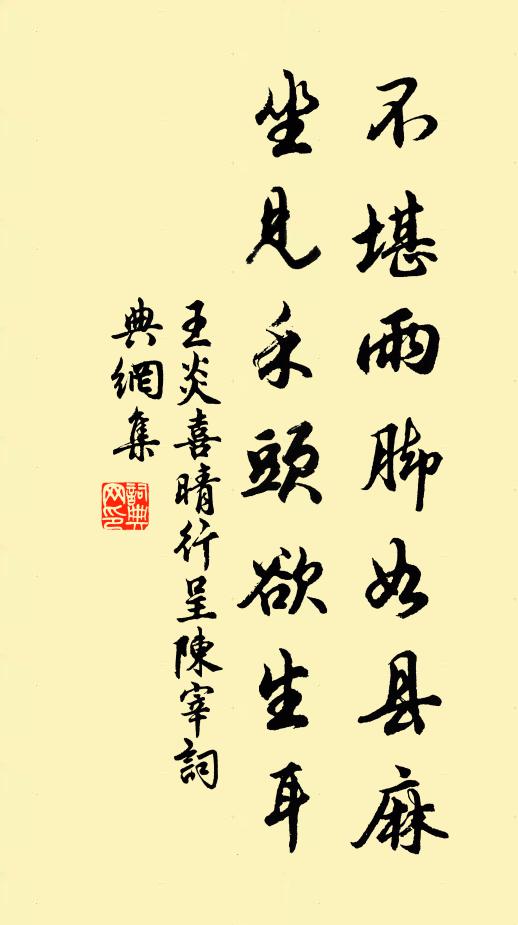 不堪雨脚如县麻
坐見禾頭欲生耳
王炎喜晴行呈陳宰詞
典網集
詞典
网印